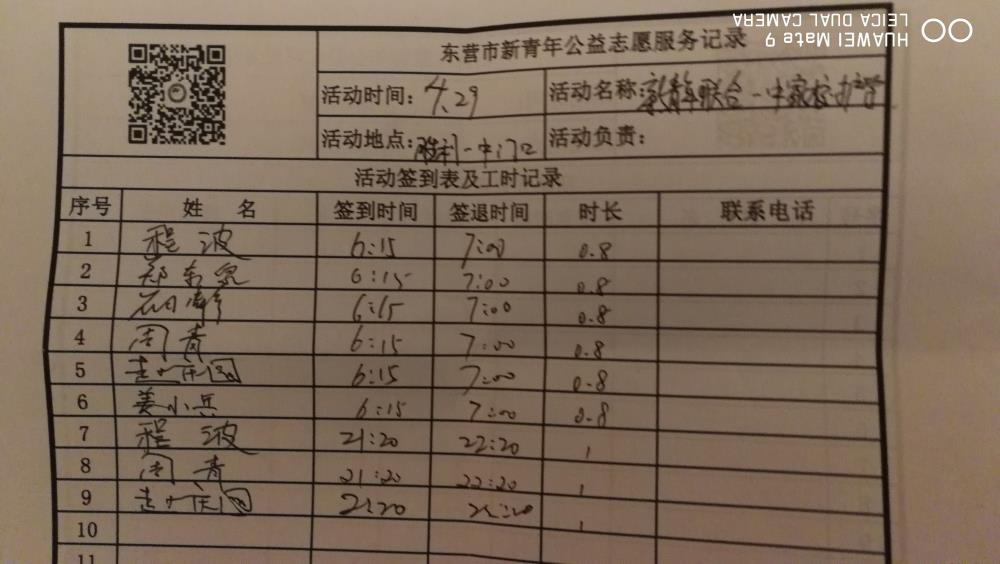 HUAWEI Mate 9
LEICA DUAL CAMERA
东营市新青年公益志愿服务记录
活动时间: 4.29 活动名称: 新青年联合一中家校办学
活动地点: 胜利一中门口 活动负责:
活动签到表及工时记录
序号 姓 名 签到时间 签退时间 时长 联系电话
1 程波 6:15 7:00 0.8
2 郑东泉 6:15 7:00 0.8
3 6:15 7:00 0.8
4 周青 6:15 7:00 0.8
5 6:15 7:00 0.8
6 姜小兵 6:15 7:00 0.8
7 程波 21:20 22:20 1
8 周青 21:20 22:20 1
9 21:20 22:20 1
10
11